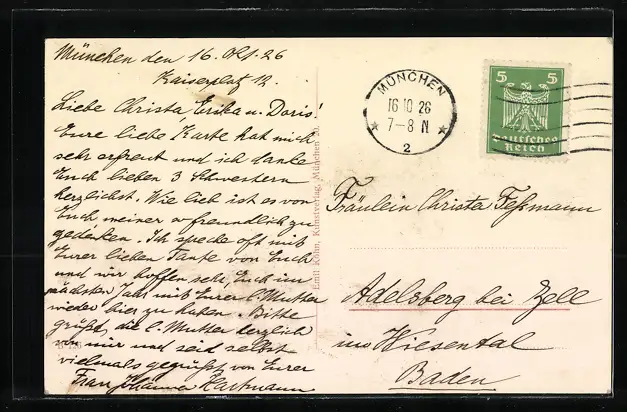 München den 16. Okt. 26
Kaiserplatz 12.
Liebe Christa, Erika u. Doris!
Eure liebe Karte hat mich
sehr erfreut und ich danke
Euch lieben 3 Schwestern
herzlichst. Wie lieb ist es von
Euch meiner so freundlich zu
gedenken. Ich spreche oft mit
Eurer lieben Tante von Euch
und wir hoffen sehr, Euch im
nächsten Jahr mit Eurer l. Mutter
wieder hier zu haben. Bitte
grüßt, die l. Mutter herzlich
von mir und seid selbst
vielmals gegrüßt von Eurer
Frau Hartmann
Emil Köhn, Kunstverlag, München
MÜNCHEN
16 10 26
7-8 N
2
5 5
Deutsches
Reich
Fräulein Christa Feßmann
Adelsberg bei Zell
im Wiesental
Baden